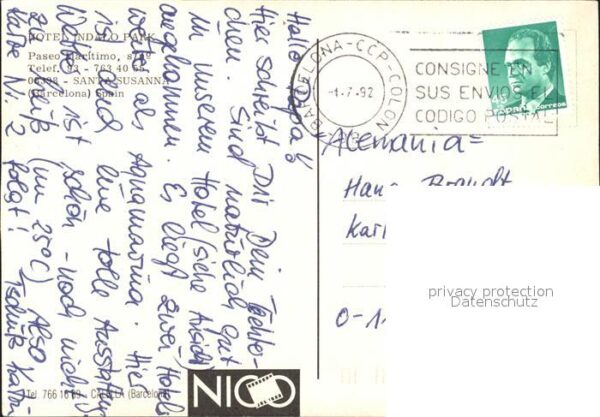 HOTEL INDALO PARK
Paseo Maritimo, s/nº
08398 - SANTA SUSANNA
(Barcelona) Spain
Hallo Papa!
Hier schreibt Dir Dein Töchter-
chen. Sind natürlich gut
in unserem Hotel (siehe Ansicht)
angekommen. Es liegt zwei Hotels
weiter als Aquamarina. Hier
ist eine tolle Ausstattung
ist schön - noch nicht
heiß (um 25°C) Also
Karte Nr. 2 folgt! Tschüß
BARCELONA-CCP-COLON
-1.-7.-92
CONSIGNE EN
SUS ENVIOS EL
CODIGO POSTAL
España correos
Alemania =
Brandt
O-1
privacy protection
Datenschutz
NICO
Tel. 766 16 - CALELLA (Barcelona)